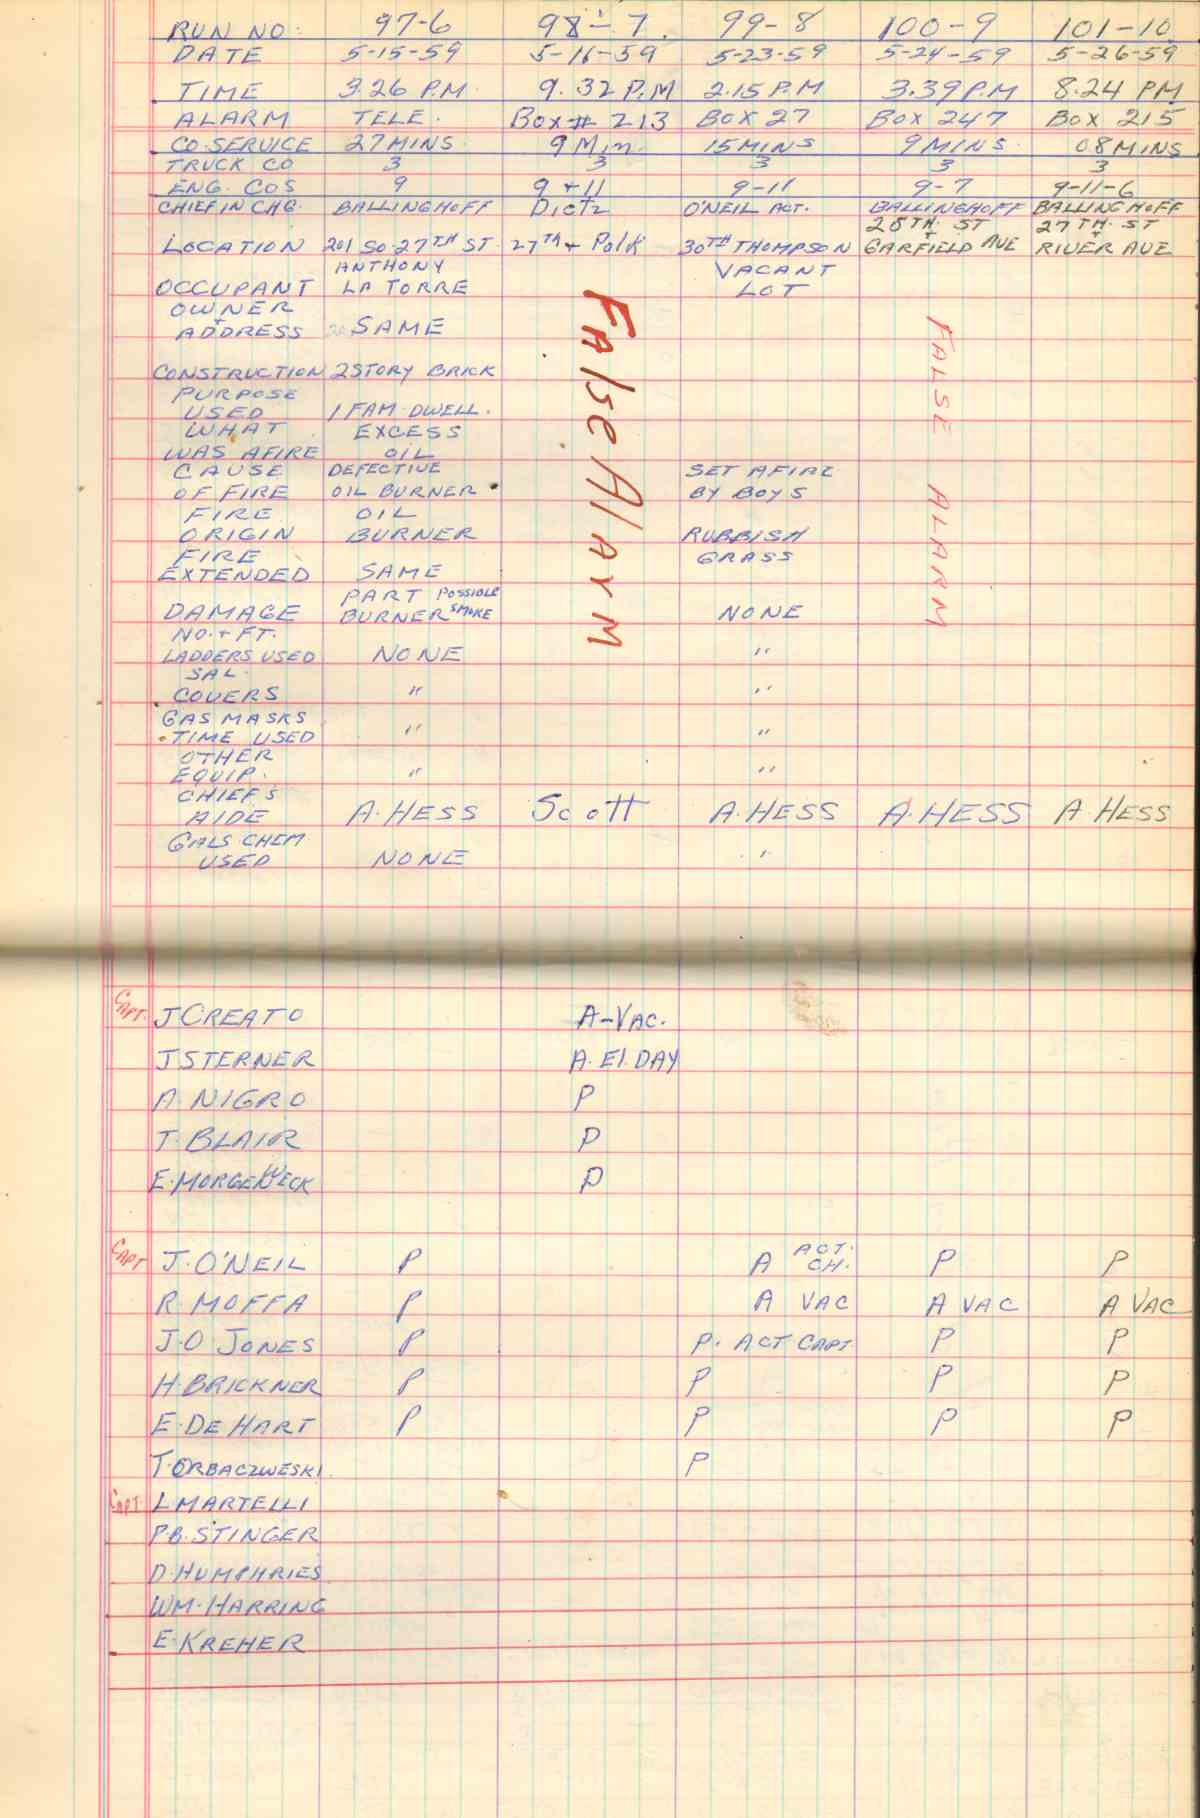 RUN NO: 97-6 98-7. 99-8 100-9 101-10
DATE 5-15-59 5-16-59 5-23-59 5-24-59 5-26-59
TIME 3.26 P.M. 9.32 P.M 2.15 P.M 3.39 P.M 8.24 PM
ALARM TELE. BOX # 213 BOX 27 BOX 247 BOX 215
CO. SERVICE 27 MINS. 9 Min. 15 MINS 9 MINS. 08 MINS
TRUCK CO 3 3 3 3 3
ENG. COS 9 9 + 11 9-11 9-7 9-11-6
CHIEF IN CHG. BALLINGHOFF Dietz O'NEIL ACT. BALLINGHOFF BALLINGHOFF
28TH. ST 27TH. ST
LOCATION 201 SO. 27TH ST. 27TH + Polk 30TH THOMPSON + GARFIELD AVE + RIVER AVE
ANTHONY VACANT
OCCUPANT LA TORRE LOT
OWNER
+ ADDRESS SAME
CONSTRUCTION 2 STORY BRICK
PURPOSE
USED 1 FAM. DWELL.
WHAT EXCESS
WAS AFIRE OIL
CAUSE DEFECTIVE SET AFIRE
OF FIRE OIL BURNER BY BOYS
FIRE OIL
ORIGIN BURNER RUBBISH
FIRE GRASS
EXTENDED SAME
PART POSSIBLE
DAMAGE BURNER SMOKE NONE
NO. + FT.
LADDERS USED NONE "
SAL.
COVERS " "
GAS MASKS
TIME USED " "
OTHER
EQUIP. " "
CHIEFS
AIDE A. HESS Scott A. HESS A. HESS A. HESS
GALS CHEM.
USED NONE "
False Alarm
FALSE ALARM
CAPT. J CREATO A-VAC.
J STERNER A. El. DAY
A. NIGRO P
T. BLAIR P
E. MORGENWECK P
CAPT J. O'NEIL P A ACT. CH. P P
R. MOFFA P A VAC A VAC A VAC
J. O JONES P P. ACT CAPT. P P
H. BRICKNER P P P P
E. DE HART P P P P
T. ORBACZWESKI. P
CAPT. L MARTELLI
P.B. STINGER
D. HUMPHRIES
WM. HARRING
E. KREHER